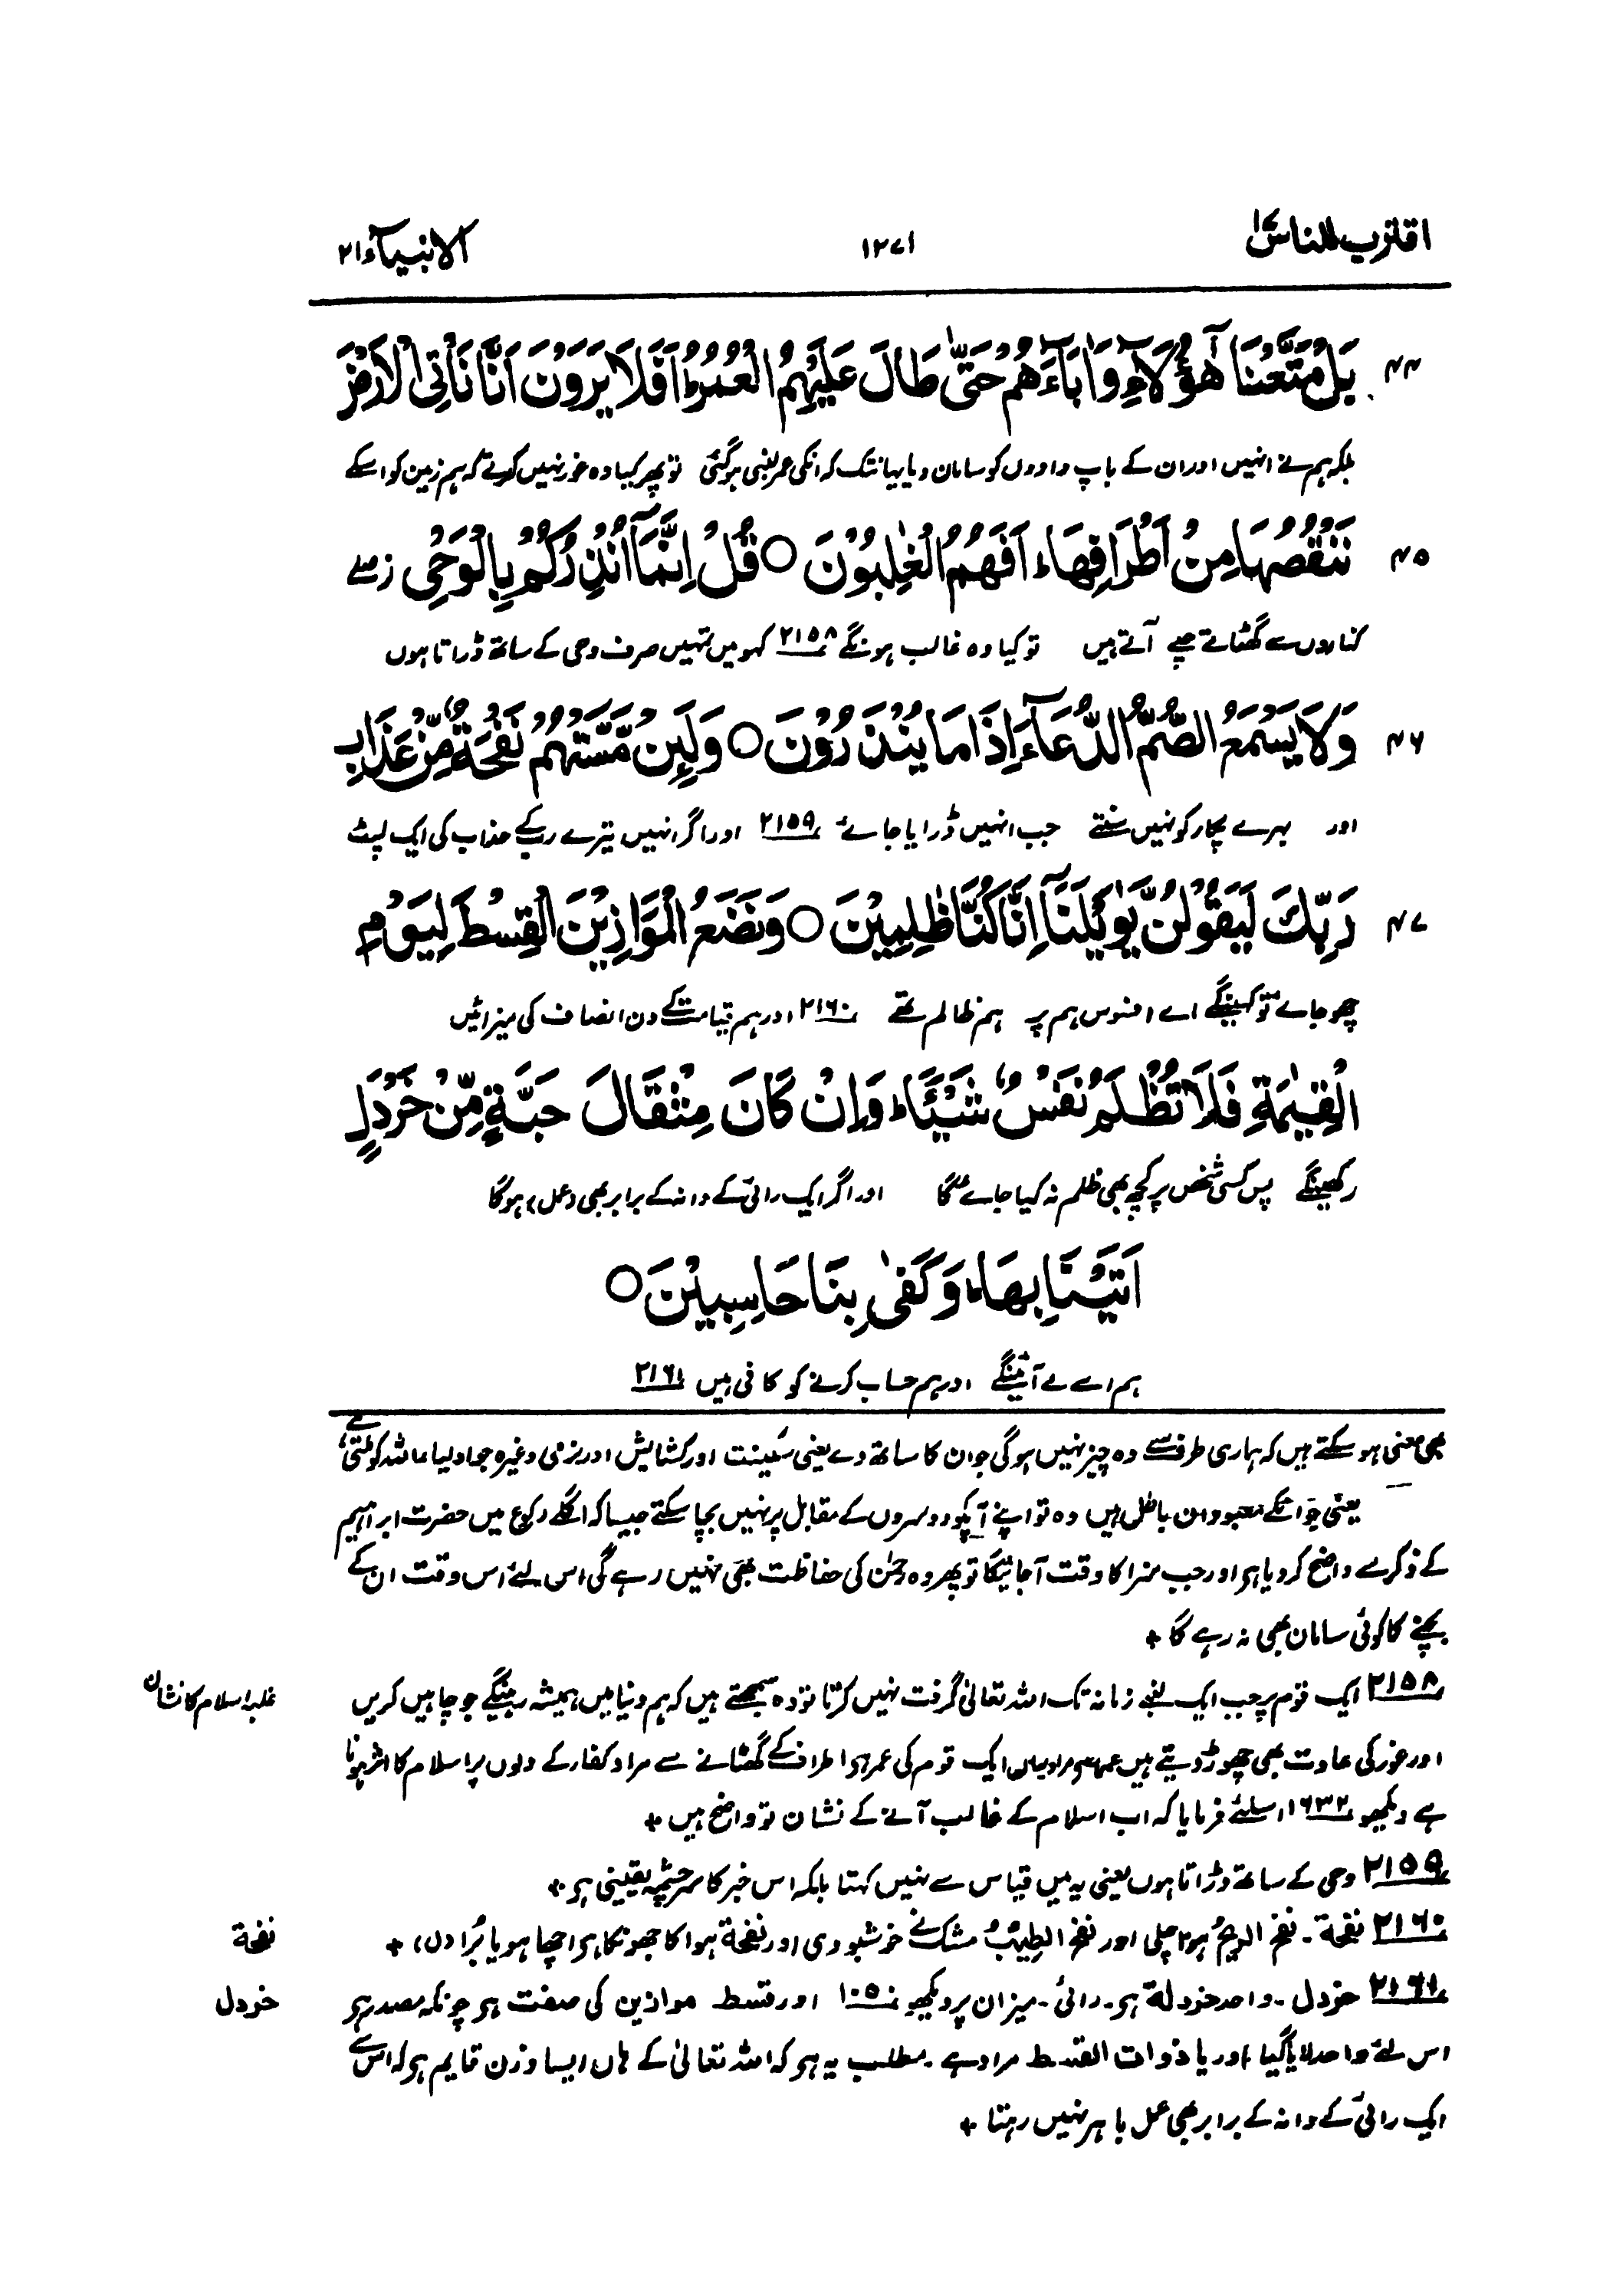 اقترب للناس ۱۷
۱۲۷۱
الانبیآء ۲۱
۴۴ بَلْ مَتَّعْنَا هٰٓؤُلَآءِ وَاٰبَآءَهُمْ حَتّٰى طَالَ عَلَيْهِمُ الْعُمُرُ ؕ اَفَلَا يَرَوْنَ اَنَّا نَاْتِى الْاَرْضَ
بلکہ ہم نے انہیں اور ان کے باپ دادوں کو سامان دیا یہانتک کہ انکی عمر لمبی ہو گئی تو پھر کیا وہ غور نہیں کرتے کہ ہم زمین کو اسکے
۴۵ نَنْقُصُهَا مِنْ اَطْرَافِهَا ؕ اَفَهُمُ الْغٰلِبُوْنَ ○ قُلْ اِنَّمَآ اُنْذِرُكُمْ بِالْوَحْىِ
کناروں سے گھٹاتے چلے آتے ہیں تو کیا وہ غالب ہونگے ۲۱۵۸ کہو میں تمہیں صرف وحی کے ساتھ ڈراتا ہوں
۴۶ وَلَا يَسْمَعُ الصُّمُّ الدُّعَآءَ اِذَا مَا يُنْذَرُوْنَ ○ وَلَئِنْ مَّسَّتْهُمْ نَفْحَةٌ مِّنْ عَذَابِ
اور بہرے پکار کو نہیں سنتے جب انہیں ڈرایا جائے ۲۱۵۹ اور اگر انہیں تیرے رب کے عذاب کی ایک لپٹ
۴۷ رَبِّكَ لَيَقُوْلُنَّ يٰوَيْلَنَآ اِنَّا كُنَّا ظٰلِمِيْنَ ○ وَنَضَعُ الْمَوَازِيْنَ الْقِسْطَ لِيَوْمِ
چھو جائے تو کہینگے اے افسوس ہم پر ہم ظالم تھے ۲۱۶۰ اور ہم قیامت کے دن انصاف کی میزانیں
الْقِيٰمَةِ فَلَا تُظْلَمُ نَفْسٌ شَيْـًٔا ؕ وَاِنْ كَانَ مِثْقَالَ حَبَّةٍ مِّنْ خَرْدَلٍ
رکھینگے پس کسی شخص پر کچھ بھی ظلم نہ کیا جائے گا اور اگر ایک رائی کے دانہ کے برابر بھی (عمل) ہوگا
اَتَيْنَا بِهَا ؕ وَكَفٰى بِنَا حَاسِبِيْنَ ○
ہم اسے لے آئینگے اور ہم حساب کرنے کو کافی ہیں ۲۱۶۱
بھی معنی ہو سکتے ہیں کہ ہماری طرف سے وہ چیز نہیں ہوگی جو ان کا ساتھ دے یعنی سکینت اور کشایش اور نرمی وغیرہ جو اولیاءاللہ کو ملتی ہے
یعنی جو انکے معبودان باطل ہیں وہ تو اپنے آپکو دوسروں کے مقابل پر نہیں بچا سکتے جیسا کہ اگلے رکوع میں حضرت ابراہیم
کے ذکر سے واضح کر دیا ہے اور جب سزا کا وقت آجائیگا تو پھر وہ رحمٰن کی حفاظت بھی نہیں رہے گی اس لئے اس وقت ان کے
بچنے کا کوئی سامان بھی نہ رہے گا +
۲۱۵۸ ایک قوم پر جب ایک لمبے زمانہ تک اللہ تعالیٰ گرفت نہیں کرتا تو وہ سمجھتے ہیں کہ ہم دنیا میں ہمیشہ رہینگے جو چاہیں کریں
غلبہ اسلام کا نشان
اور غور کی عادت بھی چھوڑ دیتے ہیں عمر سے مراد یہاں ایک قوم کی عمر ہے اطراف کے گھٹانے سے مراد کفار کے دلوں پر اسلام کا اثر ہونا
ہے دیکھو ۱۶۳۲ اسلئے فرمایا کہ اب اسلام کے غالب آنے کے نشان تو واضح ہیں +
۲۱۵۹ وحی کے ساتھ ڈراتا ہوں یعنی یہ میں قیاس سے نہیں کہتا بلکہ اس خبر کا سرچشمہ یقینی ہے +
۲۱۶۰ نفحة - نفح الریحُ ہوا چلی اور نفح الطیبُ مشک نے خوشبو دی اور نفحة ہوا کا جھونکا ہے اچھا ہو یا بُرا (ل) +
نفحة
۲۱۶۱ خردل - واحد خردلة ہے - رائی - میزان پر دیکھو ۱۰۵۰ اور قسط موازین کی صفت ہے چونکہ مصدر ہے
خردل
اس لئے واحد لایا گیا اور یا ذوات القسط مراد ہے - مطلب یہ ہے کہ اللہ تعالیٰ کے ہاں ایسا وزن قایم ہے کہ اس سے
ایک رائی کے دانہ کے برابر بھی عمل باہر نہیں رہتا +